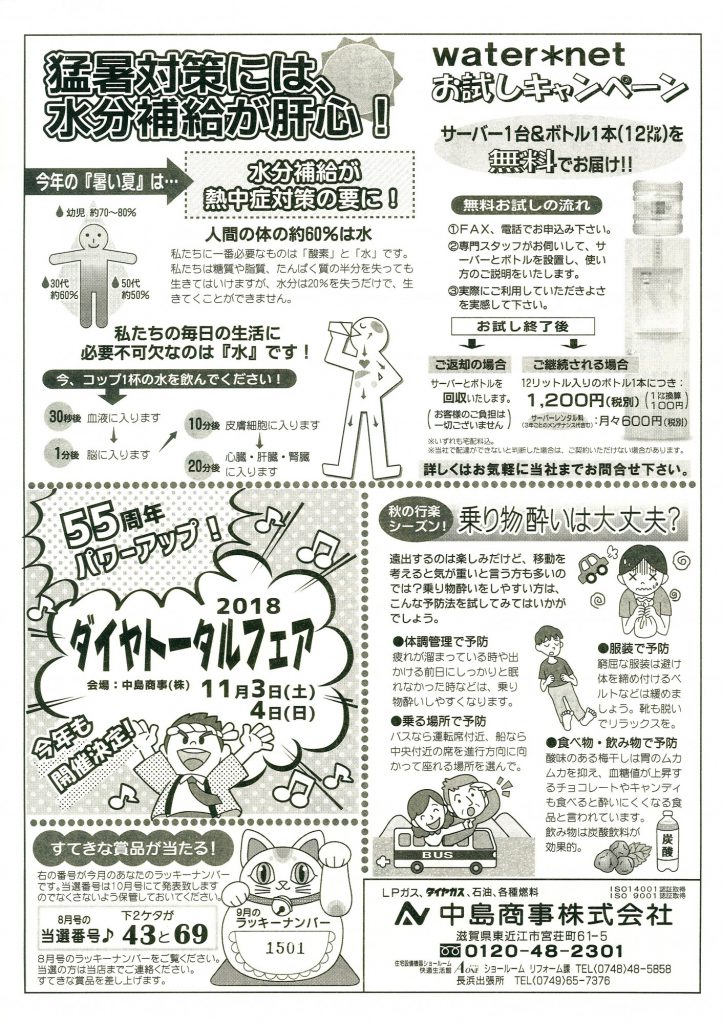 猛暑対策には、
水分補給が肝心！
今年の『暑い夏』は…
水分補給が
熱中症対策の要に！
幼児 約70～80%
30代
約60%
50代
約50%
人間の体の約60%は水
私たちに一番必要なものは「酸素」と「水」です。
私たちは糖質や脂質、たんぱく質の半分を失っても
生きてはいけますが、水分は20%を失うだけで、生
きてくことができません。
私たちの毎日の生活に
必要不可欠なのは『水』です！
今、コップ1杯の水を飲んでください！
30秒後 血液に入ります
1分後 脳に入ります
10分後 皮膚細胞に入ります
20分後 心臓・肝臓・腎臓
に入ります
water*net
お試しキャンペーン
サーバー1台&ボトル1本(12㍑)を
無料でお届け!!
無料お試しの流れ
①FAX、電話でお申込み下さい。
②専門スタッフがお伺いして、サ
ーバーとボトルを設置し、使い
方のご説明をいたします。
③実際にご利用していただきよさ
を実感して下さい。
お試し終了後
ご返却の場合
サーバーとボトルを
回収いたします。
(お客様のご負担は
一切ございません)
ご継続される場合
12リットル入りのボトル1本につき：
1,200円(税別) (1㍑換算
100円)
サーバーレンタル料
(3年ごとのメンテナンス代含む)：月々600円(税別)
※いずれも宅配料込。
※当社で配達ができないと判断した場合は、ご契約いただけない場合があります。
詳しくはお気軽に当社までお問合せ下さい。
55周年
パワーアップ！
2018
ダイヤトータルフェア
会場：中島商事(株) 11月3日(土)
4日(日)
今年も
開催決定!
秋の行楽
シーズン！
乗り物酔いは大丈夫？
遠出するのは楽しみだけど、移動を
考えると気が重いと言う方も多いの
では？乗り物酔いをしやすい方は、
こんな予防法を試してみてはいかが
でしょう。
●体調管理で予防
疲れが溜まっている時や出
かける前日にしっかりと眠
れなかった時などは、乗り
物酔いしやすくなります。
●乗る場所で予防
バスなら運転席付近、船なら
中央付近の席を進行方向に向
かって座れる場所を選んで。
●服装で予防
窮屈な服装は避け
体を締め付けるベ
ルトなどは緩めま
しょう。靴も脱い
でリラックスを。
●食べ物・飲み物で予防
酸味のある梅干しは胃のムカ
ムカを抑え、血糖値が上昇す
るチョコレートやキャンディ
も食べると酔いにくくなる食
品と言われています。
飲み物は炭酸飲料が
効果的。
BUS
炭酸
すてきな賞品が当たる！
右の番号が今月のあなたのラッキーナンバー
です。当選番号は10月号にて発表致します
のでなくさないよう保管しておいてください。
8月号の
当選番号♪
下2ケタが
43と69
8月号のラッキーナンバーをご覧ください。
当選の方は当店までご連絡ください。
すてきな賞品を差し上げます。
9月の
ラッキーナンバー
1501
LPガス、ダイヤガス、石油、各種燃料
ISO14001認証取得
ISO 9001認証取得
中島商事株式会社
滋賀県東近江市宮荘町61-5
0120-48-2301
住宅設備機器ショールーム
快適生活館
ショールーム リフォーム課 TEL(0748)48-5858
長浜出張所 TEL(0749)65-7376